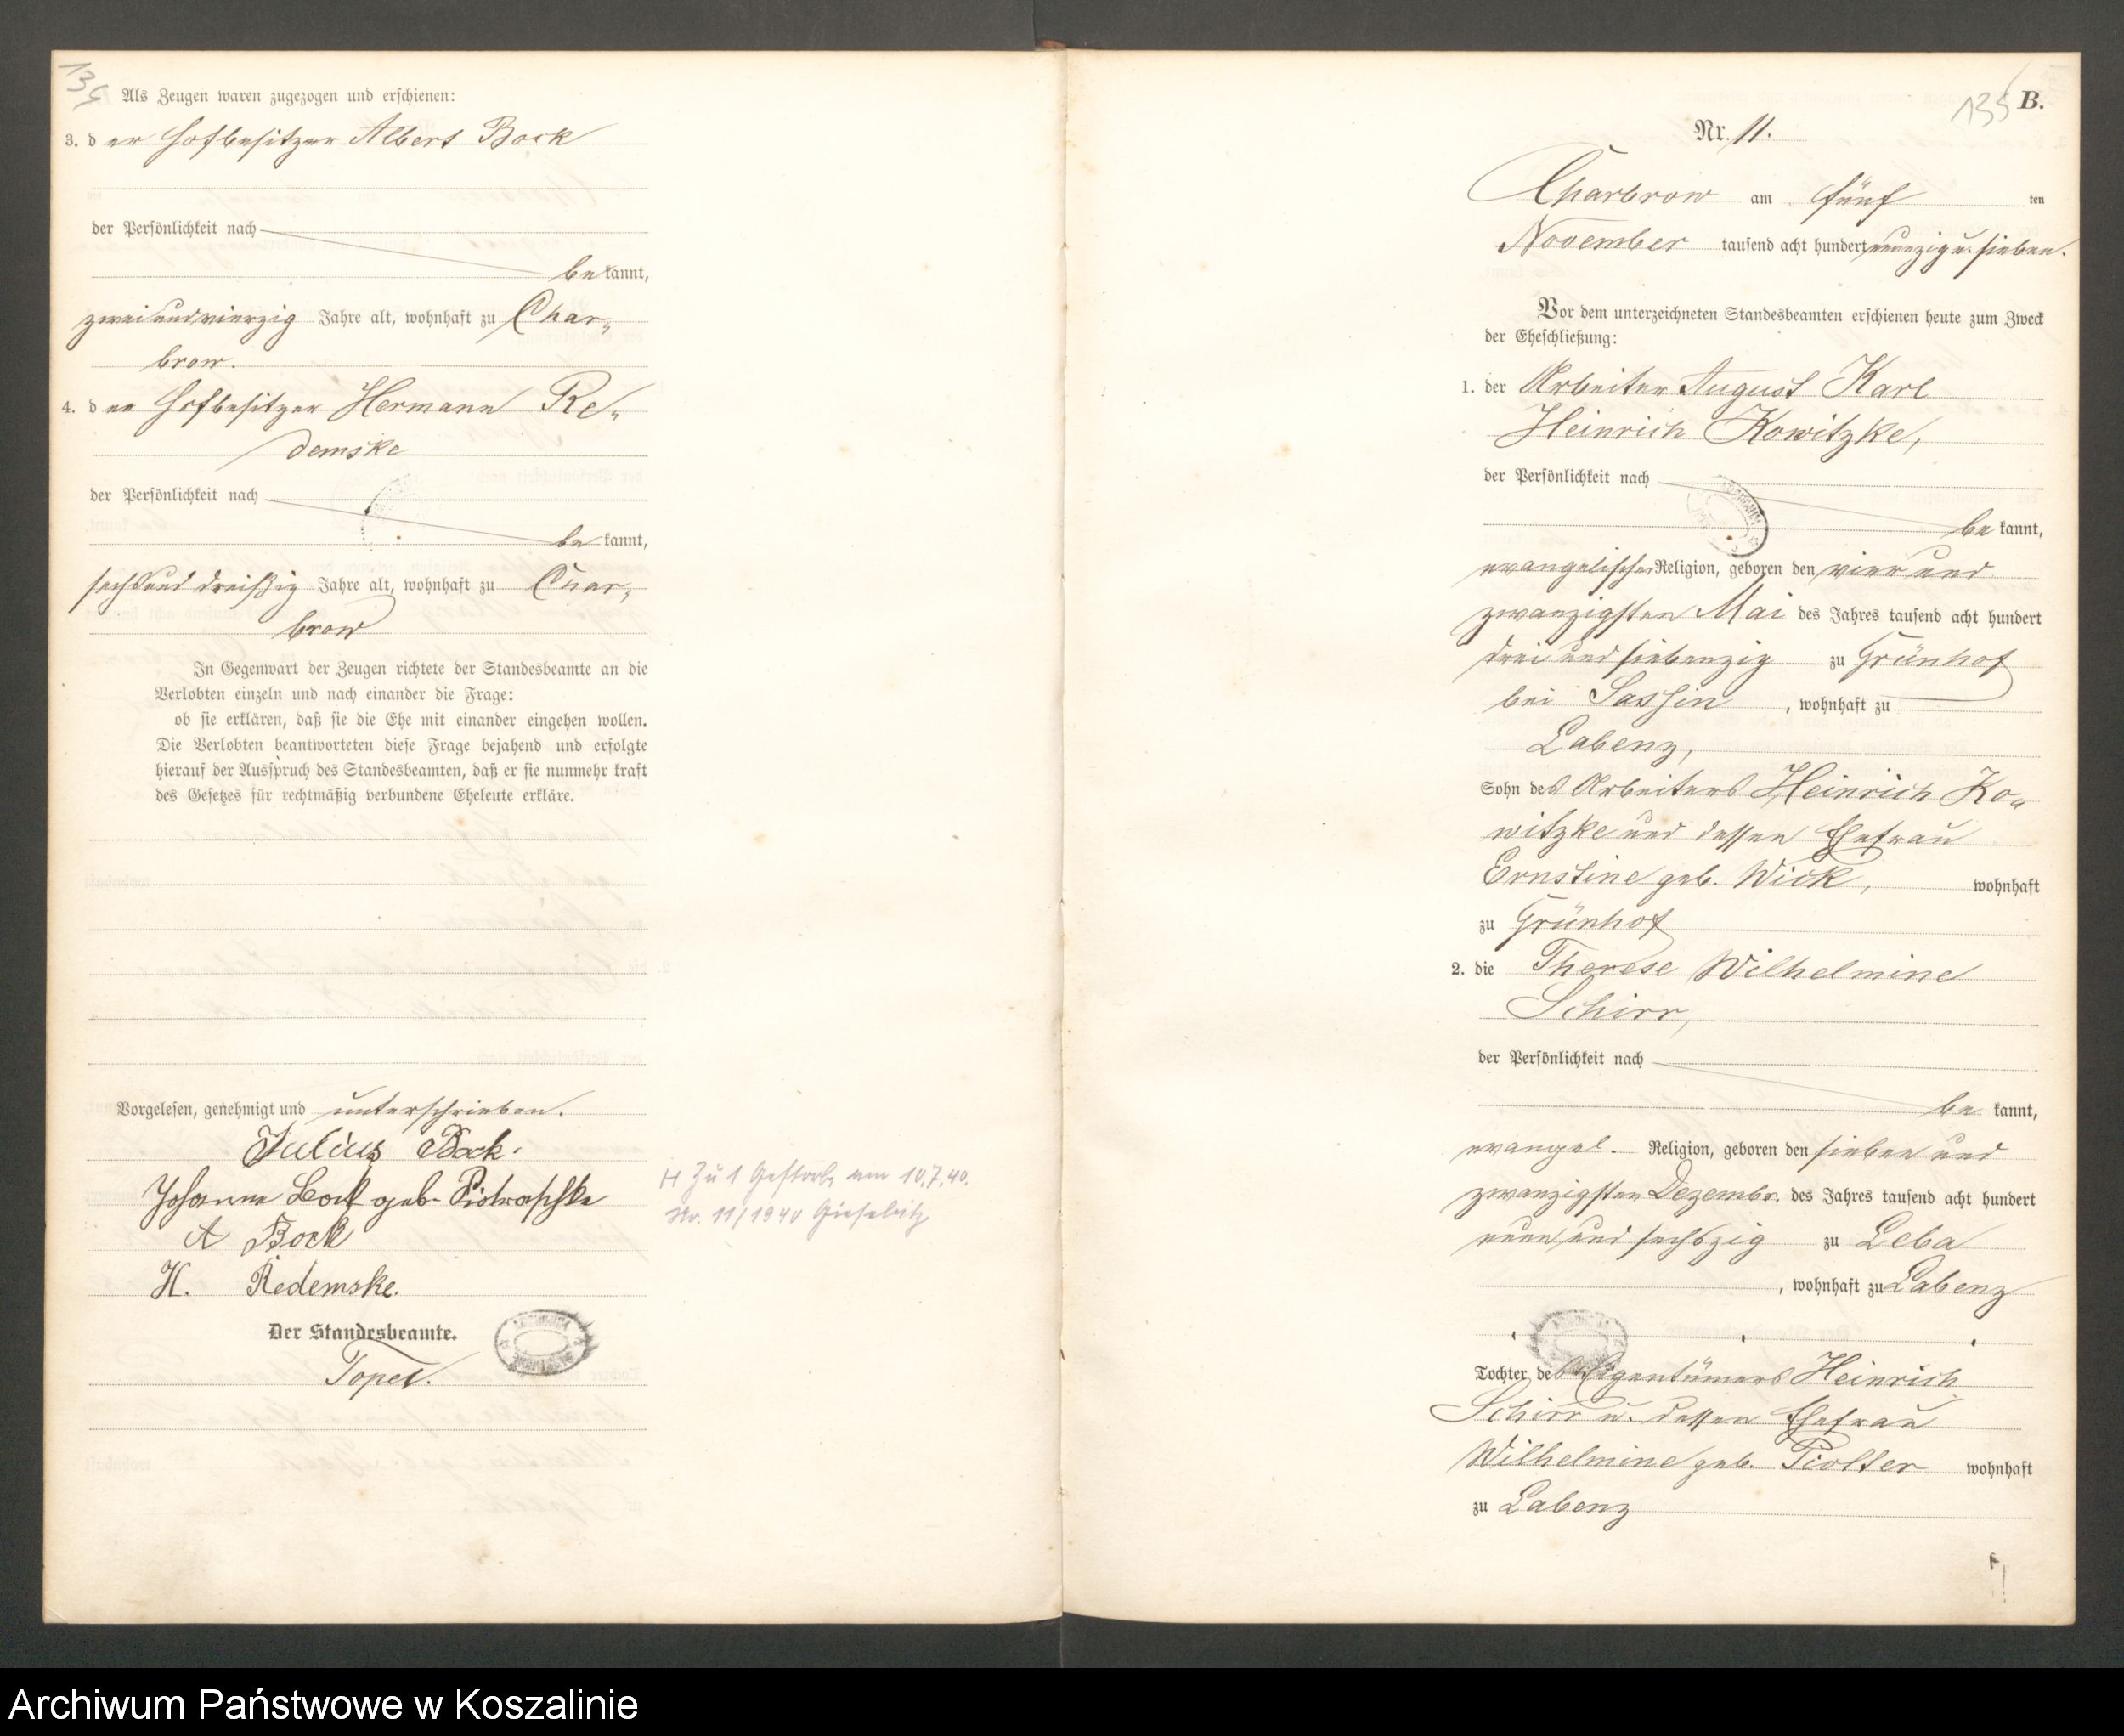 134
Als Zeugen waren zugezogen und erschienen:
3. der Hofbesitzer Albert Bock
der Persönlichkeit nach
bekannt,
zweiundvierzig Jahre alt, wohnhaft zu Char„
brow.
4. der Hofbesitzer Hermann Re„
demske
der Persönlichkeit nach
be kannt,
sechsunddreißig Jahre alt, wohnhaft zu Char„
brow
In Gegenwart der Zeugen richtete der Standesbeamte an die
Verlobten einzeln und nach einander die Frage:
ob sie erklären, daß sie die Ehe mit einander eingehen wollen.
Die Verlobten beantworteten diese Frage bejahend und erfolgte
hierauf der Ausspruch des Standesbeamten, daß er sie nunmehr kraft
des Gesetzes für rechtmäßig verbundene Eheleute erkläre.
Vorgelesen, genehmigt und unterschrieben.
Julius Bock.
Johanne Bock geb. Piotraschke
A Bock
H. Redemske.
Der Standesbeamte.
Topel.
H Zu 1 Gestorb. am 10.7.40.
Nr. 11/1940 Giesebitz
135 B.
Nr. 11.
Charbrow am fünf ten
November tausend acht hundert neunzig u. sieben.
Vor dem unterzeichneten Standesbeamten erschienen heute zum Zweck
der Eheschließung:
1. der Arbeiter August Karl
Heinrich Kowitzke,
der Persönlichkeit nach
be kannt,
evangelischer Religion, geboren den vier und
zwanzigsten Mai des Jahres tausend acht hundert
drei und siebenzig zu Grünhof
bei Sassin, wohnhaft zu
Labenz,
Sohn des Arbeiters Heinrich Ko„
witzke und dessen Ehefrau
Ernstine geb. Wick, wohnhaft
zu Grünhof
2. die Therese Wilhelmine
Schirr,
der Persönlichkeit nach
be kannt,
evangel. Religion, geboren den sieben und
zwanzigsten Dezembr. des Jahres tausend acht hundert
neun und sechszig zu Leba
, wohnhaft zu Labenz
Tochter des Eigentümers Heinrich
Schirr u. dessen Ehefrau
Wilhelmine geb. Piolter wohnhaft
zu Labenz
Archiwum Państwowe w Koszalinie